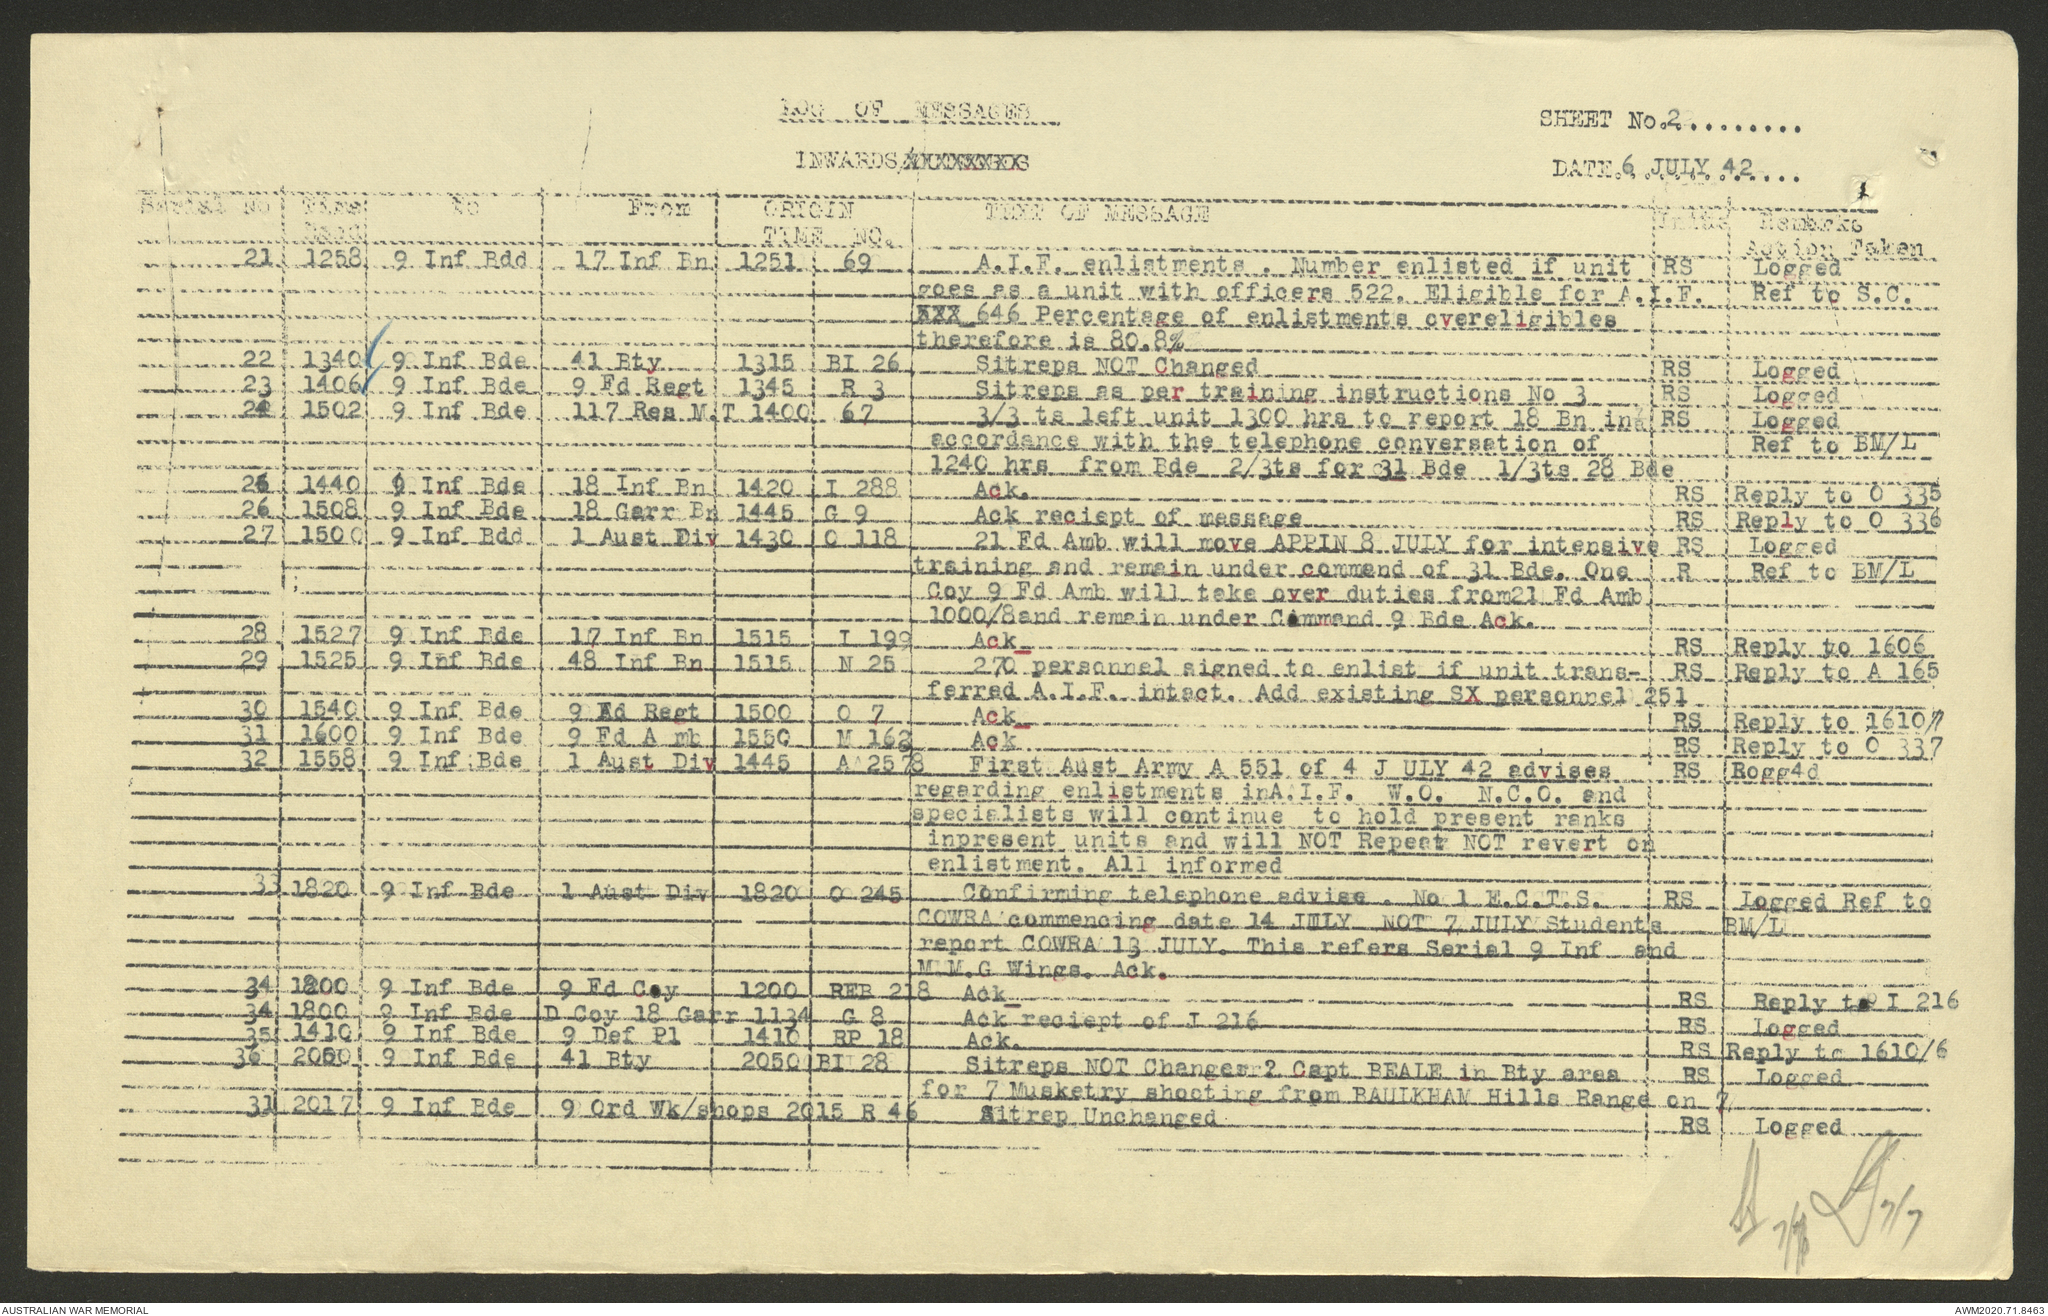 LOG OF MESSAGES
SHEET No.2.........
INWARDS/XXXXXXXXX
DATE.6 JULY 42....
Serial No Time Recd To From ORIGIN TIME NO. TEXT OF MESSAGE Remarks Action Taken
21 1258 9 Inf Bdd 17 Inf Bn 1251 69 A.I.F. enlistments . Number enlisted if unit RS Logged
goes as a unit with officers 522. Eligible for A.I.F. Ref to S.C.
XXX 646 Percentage of enlistments overeligibles
therefore is 80.8%
22 1340 9 Inf Bde 41 Bty 1315 BI 26 Sitreps NOT Changed RS Logged
23 1406 9 Inf Bde 9 Fd Regt 1345 R 3 Sitreps as per training instructions No 3 RS Logged
24 1502 9 Inf Bde 117 Res M.T 1400 67 3/3 ts left unit 1300 hrs to report 18 Bn in RS Logged
accordance with the telephone conversation of Ref to BM/L
1240 hrs from Bde 2/3ts for 31 Bde 1/3ts 28 Bde
1440 9 Inf Bde 18 Inf Bn 1420 I 288 Ack. RS Reply to O 335
26 1508 9 Inf Bde 18 Garr Bn 1445 G 9 Ack reciept of message RS Reply to O 336
27 1500 9 Inf Bdd 1 Aust Div 1430 O 118 21 Fd Amb will move APPIN 8 JULY for intensive RS Logged
training and remain under commend of 31 Bde. One R Ref to BM/L
Coy 9 Fd Amb will take over duties from21 Fd Amb
1000/8and remain under Command 9 Bde Ack.
28 1527 9 Inf Bde 17 Inf Bn 1515 I 199 Ack RS Reply to 1606
29 1525 9 Inf Bde 48 Inf Bn 1515 N 25 270 personnel signed to enlist if unit trans- RS Reply to A 165
ferred A.I.F. intact. Add existing SX personnel 251
30 1540 9 Inf Bde 9 Fd Regt 1500 O 7 Ack RS Reply to 1610/
31 1600 9 Inf Bde 9 Fd A mb 1550 M 162 Ack RS Reply to O 337
32 1558 9 Inf Bde 1 Aust Div 1445 A 2578 First Aust Army A 551 of 4 J ULY 42 advises RS Rogg4d
regarding enlistments inA.I.F. W.O. N.C.O. and
specialists will continue to hold present ranks
inpresent units and will NOT Repeat NOT revert on
enlistment. All informed
33 1820 9 Inf Bde 1 Aust Div 1820 O 245 Confirming telephone advise . No 1 E.C.T.S. RS Logged Ref to
COWRA commencing date 14 JULY NOT 7 JULY Students BM/L
report COWRA 13 JULY. This refers Serial 9 Inf and
M M.G Wings. Ack.
34 1200 9 Inf Bde 9 Fd Coy 1200 REB 218 Ack RS Reply to I 216
34 1800 9 Inf Bde D Coy 18 Garr 1134 G 8 Ack reciept of I 216 RS Logged
35 1410 9 Inf Bde 9 Def Pl 1410 RP 18 Ack. RS Reply to 1610/6
36 2050 9 Inf Bde 41 Bty 2050 BI 28 Sitreps NOT Changer ? Capt BEALE in Bty area RS Logged
for 7 Musketry shooting from BAULKHAM Hills Range on 7
31 2017 9 Inf Bde 9 Ord Wk/shops 2015 R 46 Sitrep Unchanged RS Logged
7/7
AUSTRALIAN WAR MEMORIAL
AWM2020.71.8463